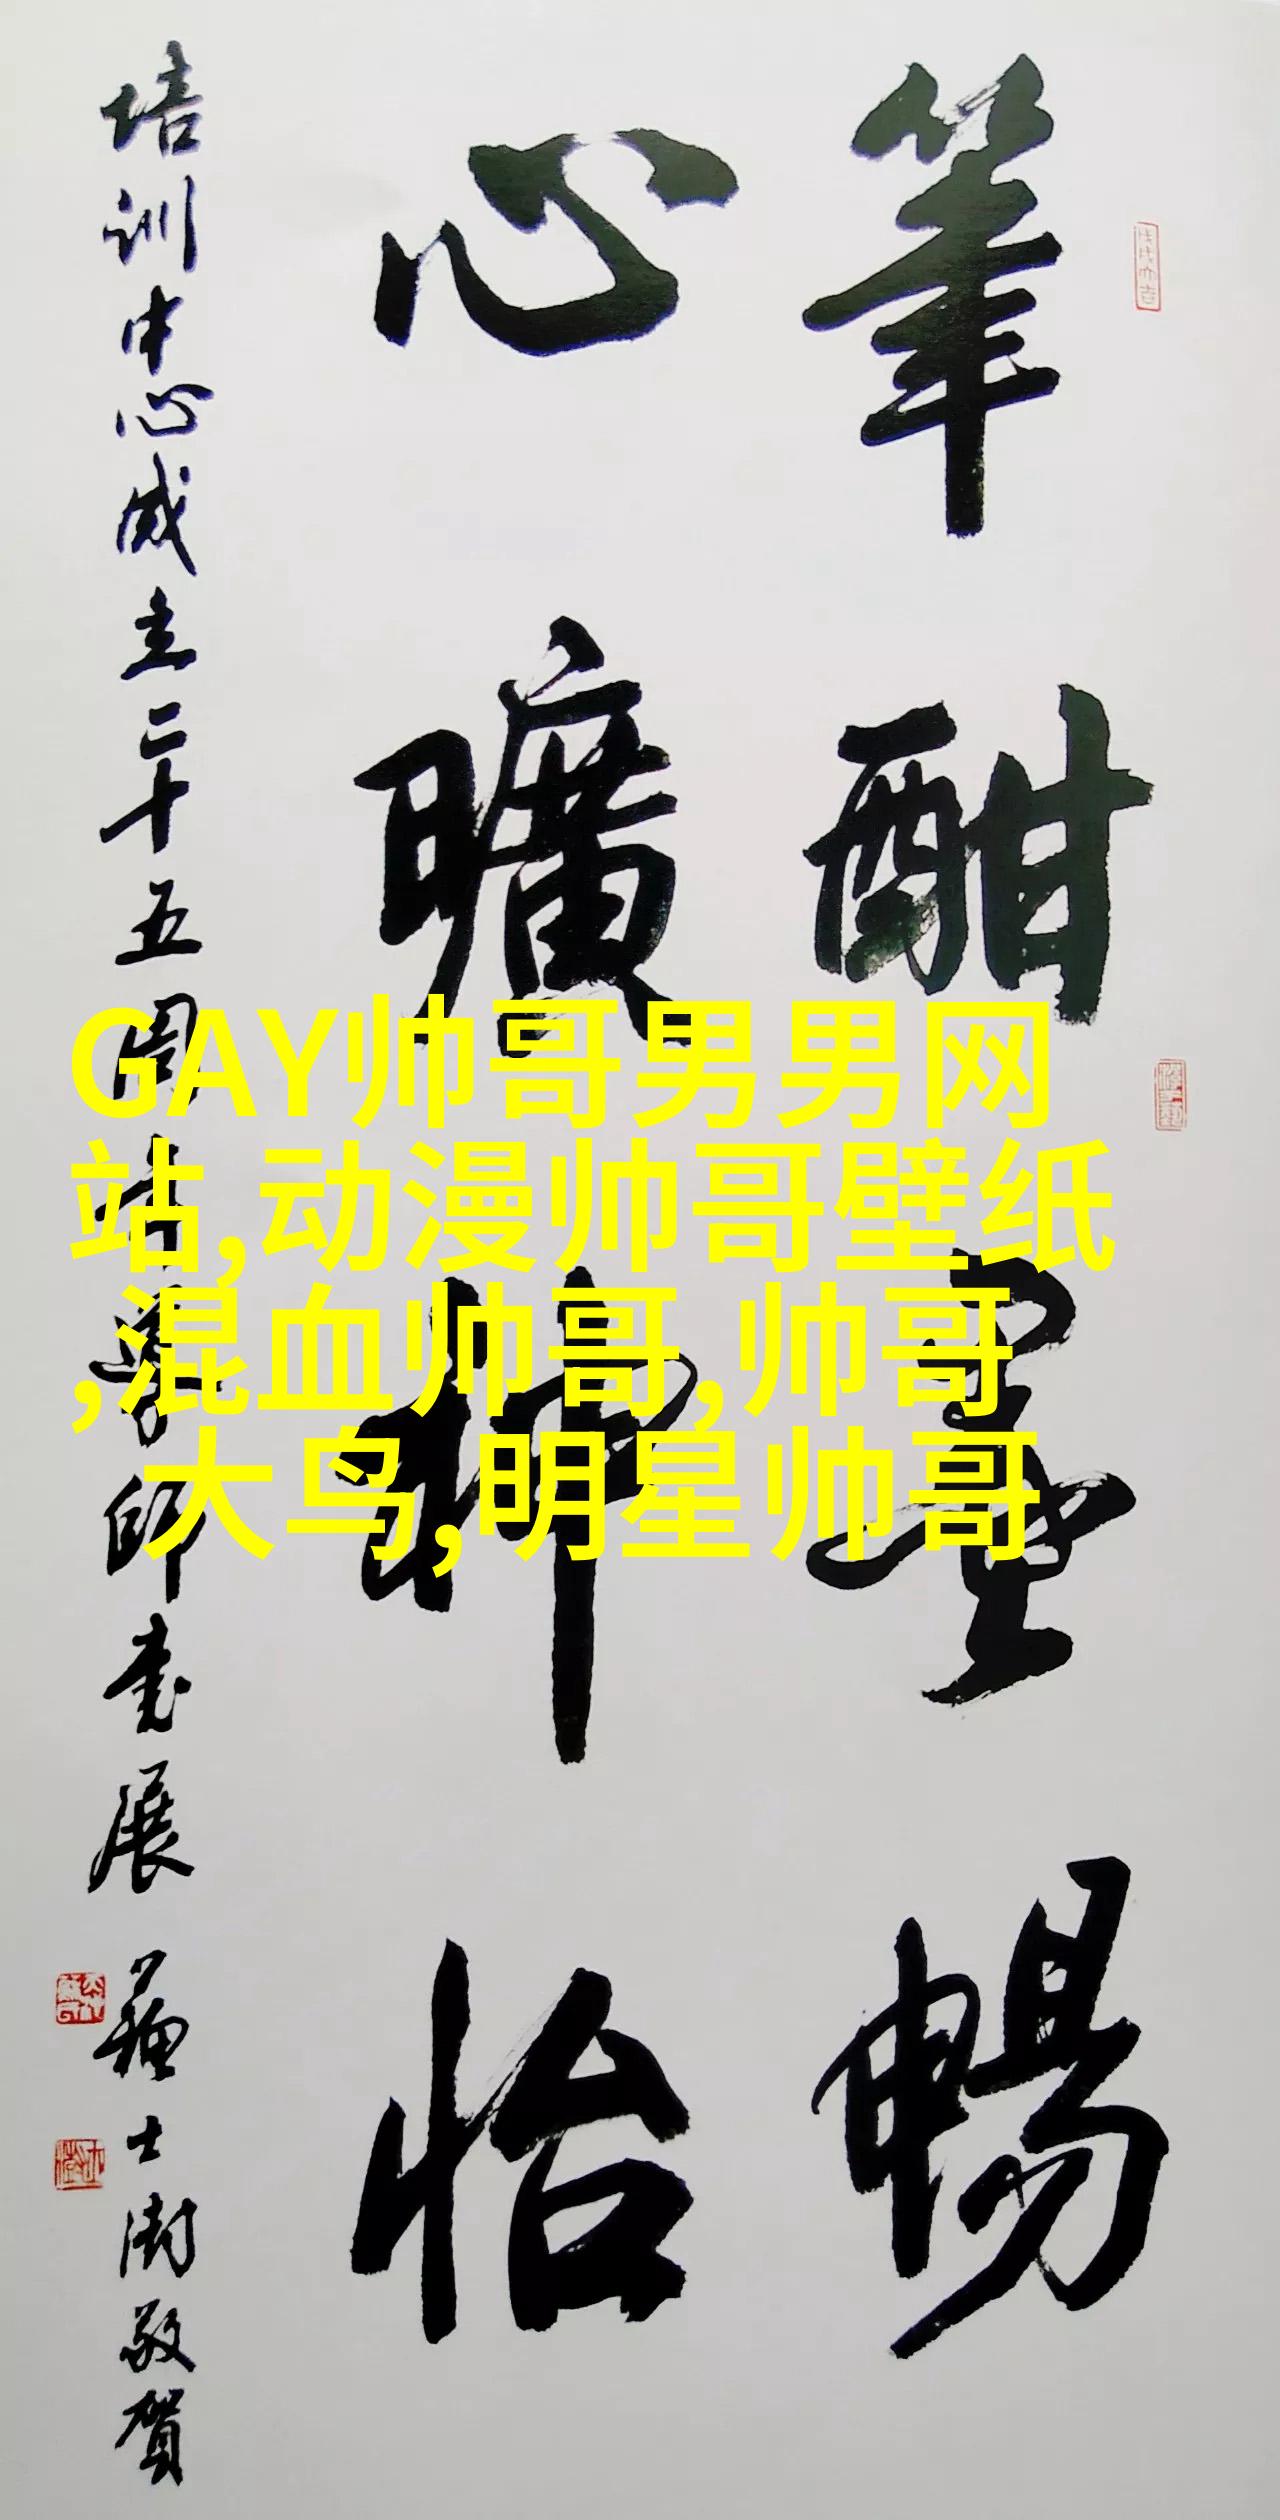 筆酣墨暢
心曠神怡
培训中心成立二十五周年导师书展
苏士澍敬贺
GAY帅哥男男网
站,动漫帅哥壁纸
,混血帅哥,帅哥
大鸟,明星帅哥